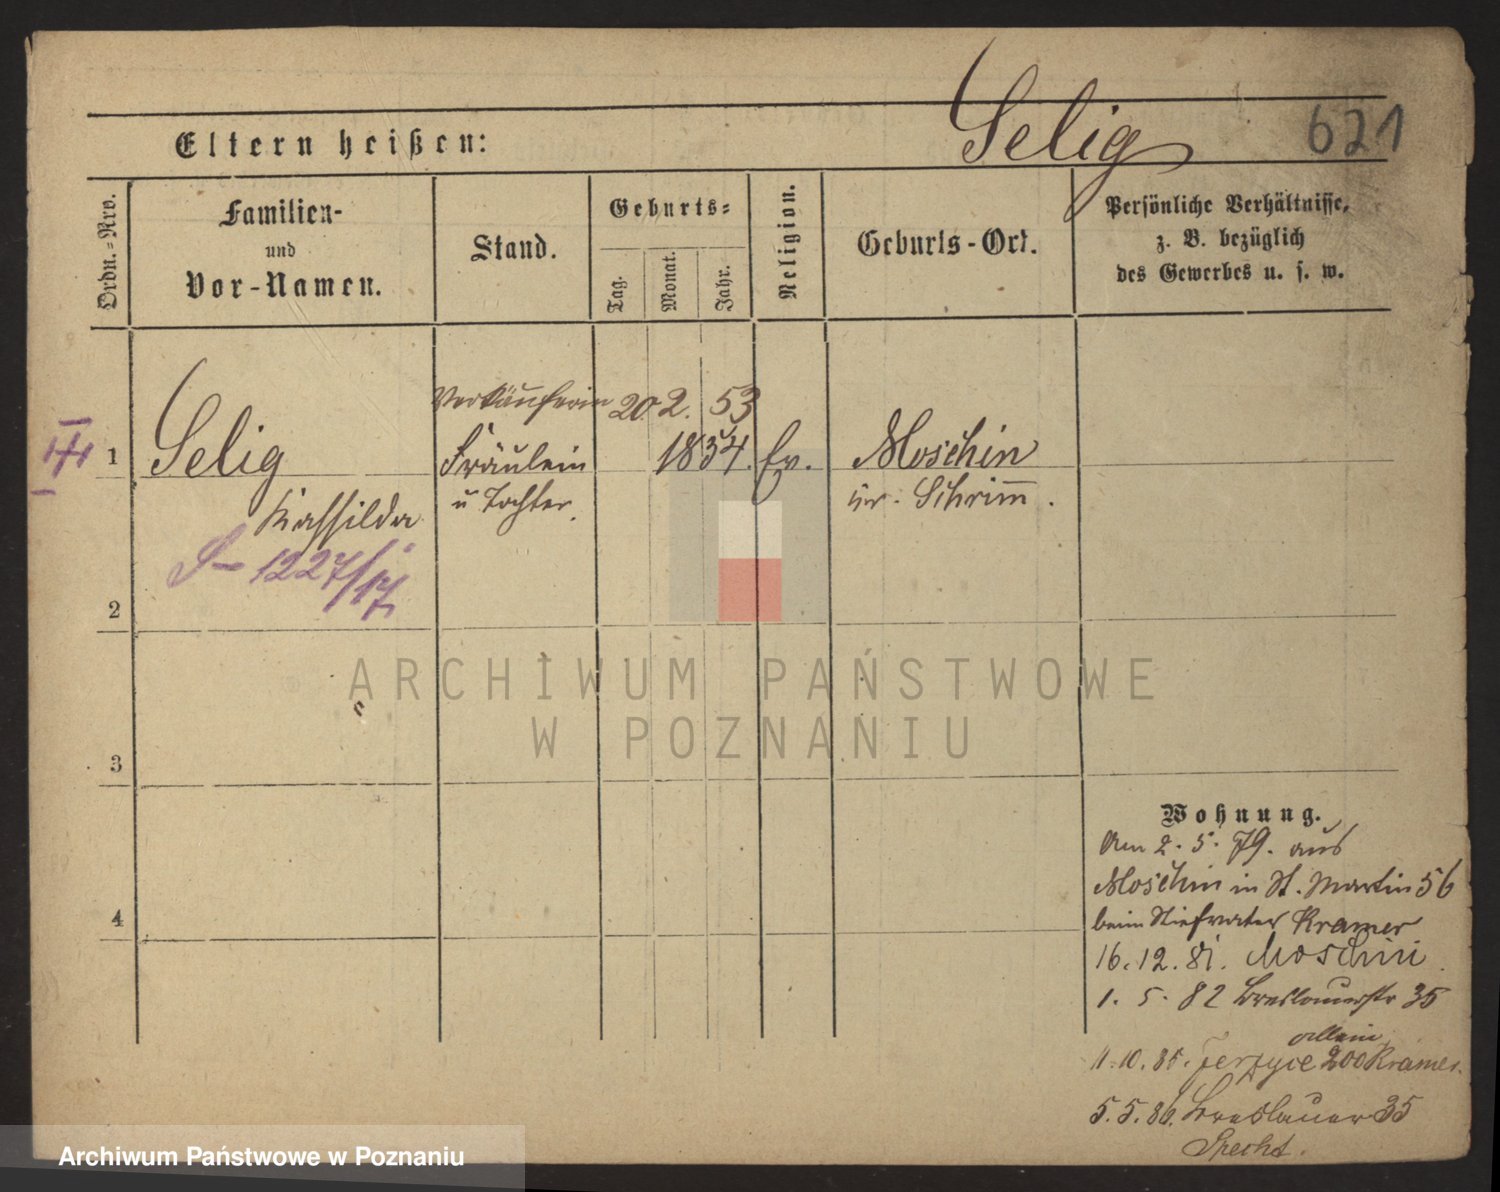 Selig 621
Eltern heißen:
Ordn.=Nro.
Familien-
und
Vor-Namen.
Stand.
Geburts=
Tag.
Monat.
Jahr.
Religion.
Geburts-Ort.
Persönliche Verhältnisse,
z. B. bezüglich
des Gewerbes u. s. w.
Verkäuferin 20. 2. 53
1 Selig Fräulein 1854. Ev. Moschin
u Tochter. Kr. Schrimm.
Mathilda
S- 1227/17
2
3
4
Wohnung.
Am 2. 5. 79. aus
Moschin in St. Martin 56
beim Stiefvater Kramer
16. 12. 81. Moschin
1. 5. 82 Breslauerstr 35
allein
11. 10. 85. Jerzyce 200 Kramer.
5. 5. 86. Breslauer 35
Specht.
ARCHIWUM PAŃSTWOWE
W POZNANIU
Archiwum Państwowe w Poznaniu